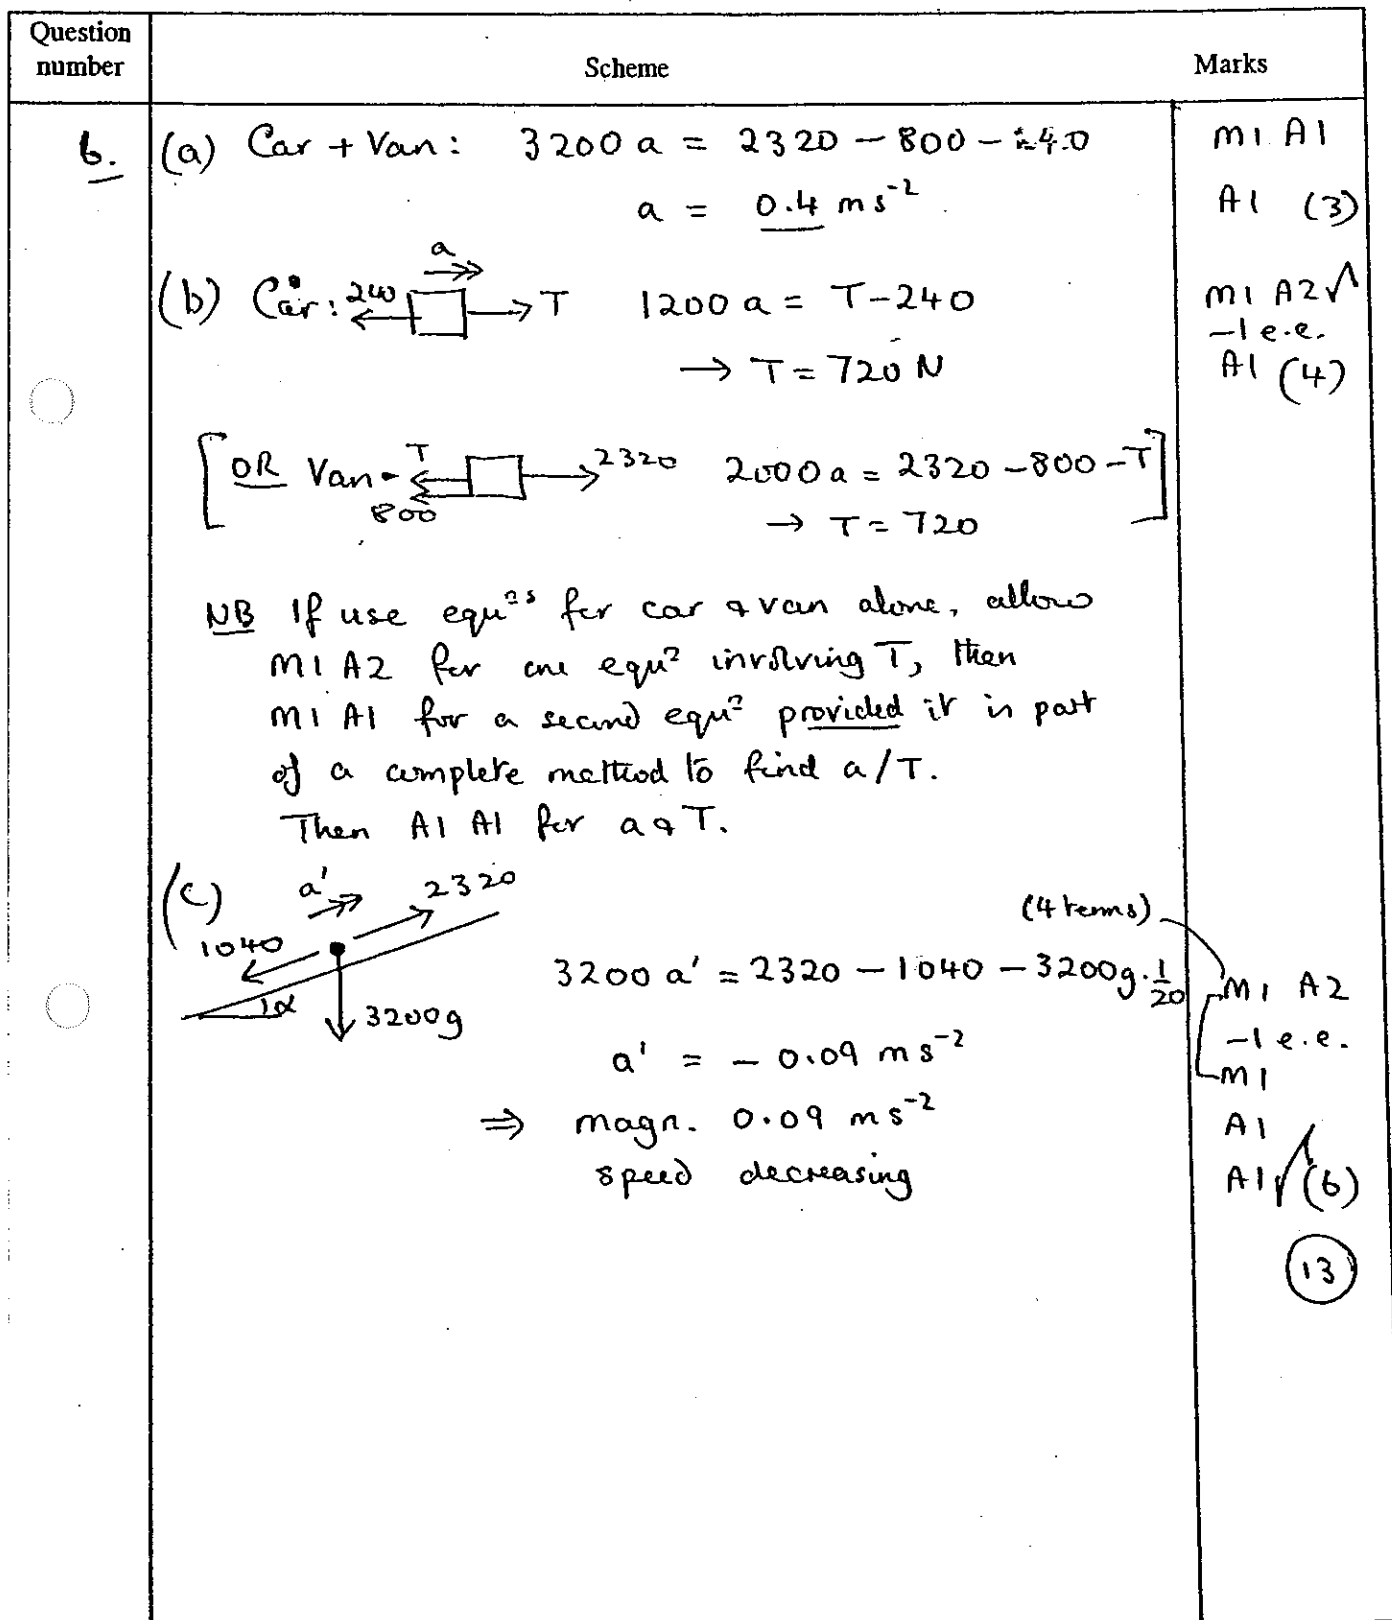 Question number Scheme Marks
6. (a) Car + Van: 3200 a = 2320 – 800 – 240 M1 A1
a = 0.4 ms⁻² A1 (3)
a
(b) Car: 240 → T 1200 a = T – 240 M1 A2√
–1 e.e.
→ T = 720 N A1 (4)
[OR Van T 800 → 2320 2000 a = 2320 – 800 – T]
→ T = 720
NB If use equⁿs for car & van alone, allow
M1 A2 for one equⁿ involving T, then
M1 A1 for a second equⁿ provided it is part
of a complete method to find a/T.
Then A1 A1 for a & T.
(c) a' 2320
1040 (4 terms)
3200 a' = 2320 – 1040 – 3200g.1/20 M1 A2
α 3200g –1 e.e.
a' = – 0.09 ms⁻² M1
⇒ magn. 0.09 ms⁻² A1
speed decreasing A1√ (6)
13